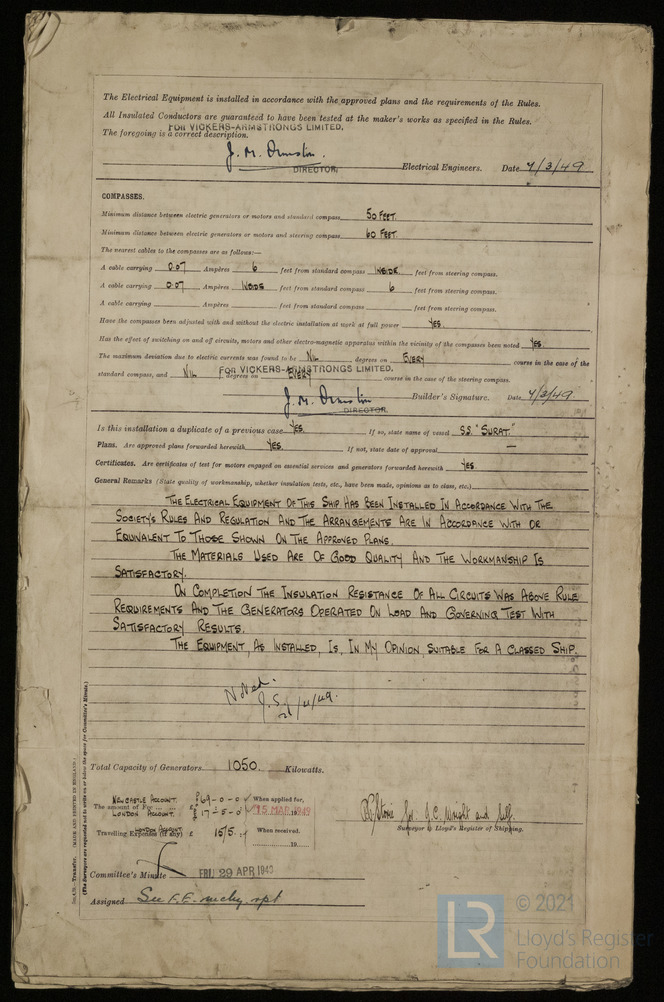 The Electrical Equipment is installed in accordance with the approved plans and the requirements of the Rules.
All Insulated Conductors are guaranteed to have been tested at the maker's works as specified in the Rules.
FOR VICKERS-ARMSTRONGS LIMITED.
The foregoing is a correct description.
J. M. Ormston.
DIRECTOR, Electrical Engineers. Date 4/3/49
COMPASSES.
Minimum distance between electric generators or motors and standard compass 50 FEET.
Minimum distance between electric generators or motors and steering compass 60 FEET.
The nearest cables to the compasses are as follows:—
A cable carrying 0.07 Ampères 6 feet from standard compass INSIDE feet from steering compass.
A cable carrying 0.07 Ampères INSIDE feet from standard compass 6 feet from steering compass.
A cable carrying Ampères feet from standard compass feet from steering compass.
Have the compasses been adjusted with and without the electric installation at work at full power YES.
Has the effect of switching on and off circuits, motors and other electro-magnetic apparatus within the vicinity of the compasses been noted YES.
The maximum deviation due to electric currents was found to be NIL degrees on EVERY course in the case of the
FOR VICKERS-ARMSTRONGS LIMITED.
standard compass, and NIL degrees on EVERY course in the case of the steering compass.
J. M. Ormston Builder's Signature. Date 4/3/49.
DIRECTOR.
Is this installation a duplicate of a previous case YES. If so, state name of vessel S.S. "SURAT."
Plans. Are approved plans forwarded herewith YES. If not, state date of approval —
Certificates. Are certificates of test for motors engaged on essential services and generators forwarded herewith YES.
General Remarks (State quality of workmanship, whether insulation tests, etc., have been made, opinions as to class, etc.)
THE ELECTRICAL EQUIPMENT OF THIS SHIP HAS BEEN INSTALLED IN ACCORDANCE WITH THE
SOCIETY'S RULES AND REGULATION AND THE ARRANGEMENTS ARE IN ACCORDANCE WITH OR
EQUIVALENT TO THOSE SHOWN ON THE APPROVED PLANS.
THE MATERIALS USED ARE OF GOOD QUALITY AND THE WORKMANSHIP IS
SATISFACTORY.
ON COMPLETION THE INSULATION RESISTANCE OF ALL CIRCUITS WAS ABOVE RULE
REQUIREMENTS AND THE GENERATORS OPERATED ON LOAD AND GOVERNING TEST WITH
SATISFACTORY RESULTS.
THE EQUIPMENT, AS INSTALLED, IS, IN MY OPINION, SUITABLE FOR A CLASSED SHIP.
Noted.
J.S.
21/4/49.
Total Capacity of Generators 1050. Kilowatts.
NEWCASTLE ACCOUNT. £ 69-0-0 When applied for,
The amount of Fee £ 15 MAR 1949
LONDON ACCOUNT. 17-5-0 19
LONDON ACCOUNT.
Travelling Expenses (if any) £ 15/5. When received.
19
for J.C. Wright and Self.
Surveyor to Lloyd's Register of Shipping.
Committee's Minute FRI. 29 APR 1949
Assigned See F.E. mchy. rpt
(MADE AND PRINTED IN ENGLAND.)
(The Surveyors are requested not to write on or below the space for Committee's Minute.)
LR
© 2021
Lloyd's Register
Foundation